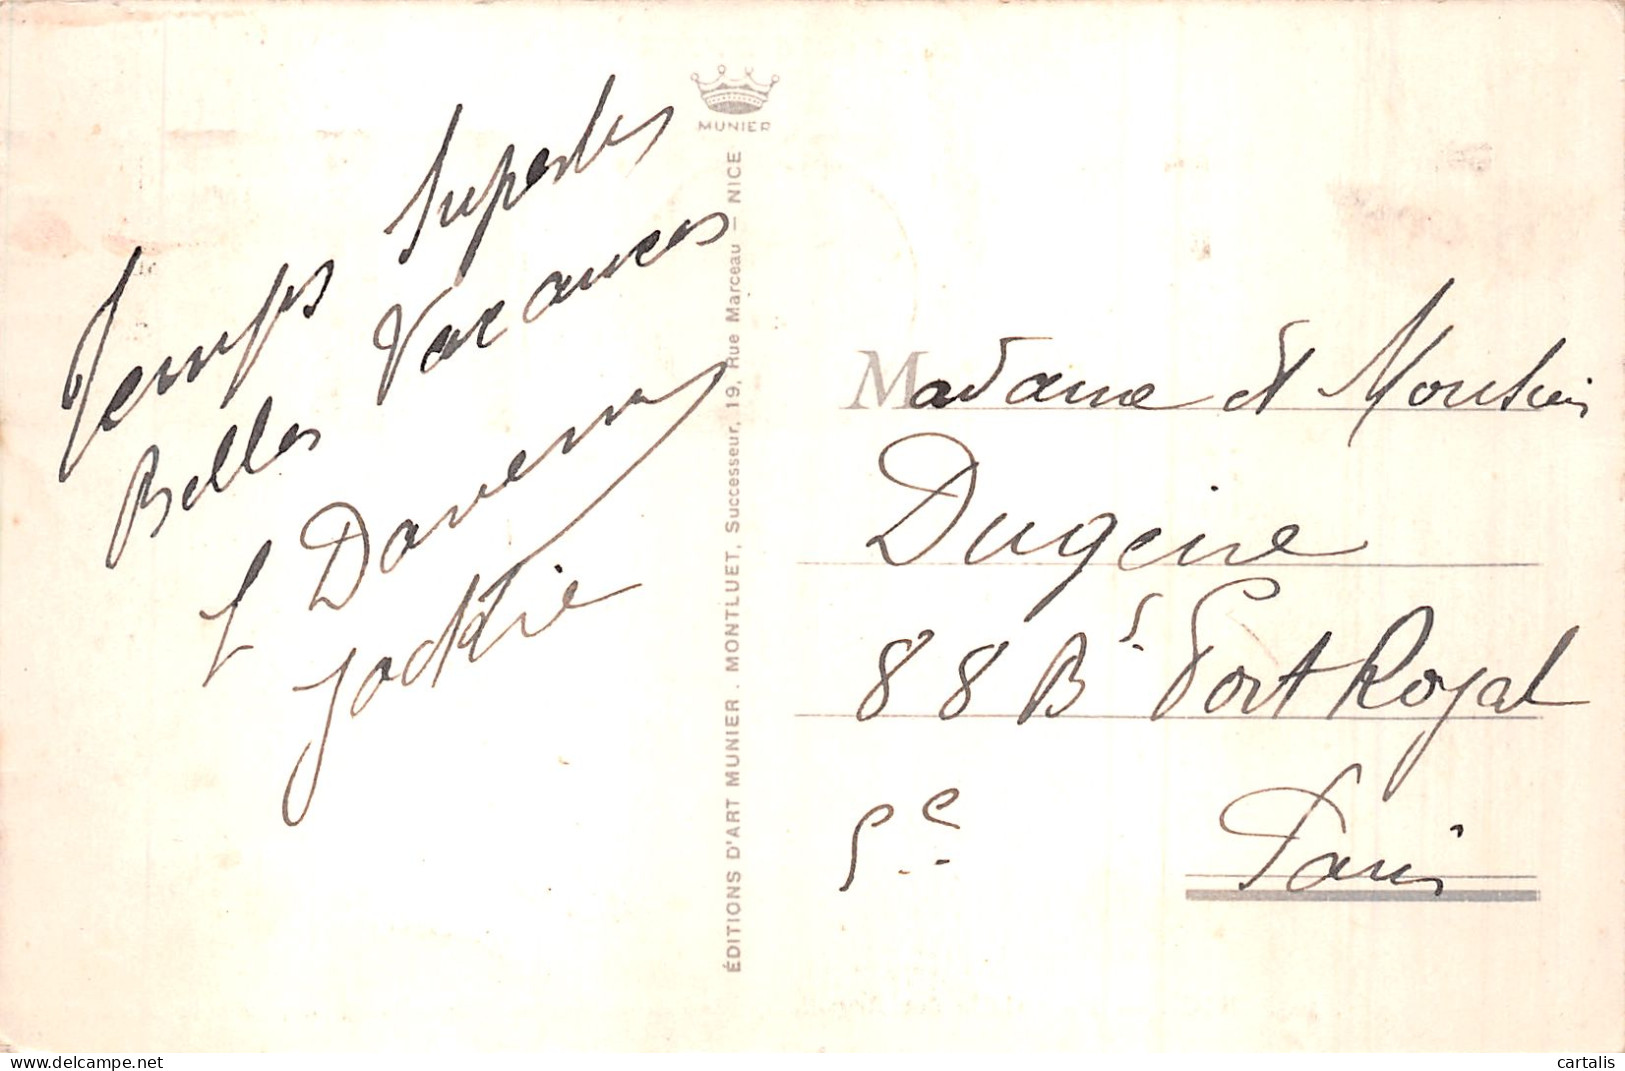 Temps Superbes
Belles Vacances
Jackie
MUNIER
ÉDITIONS D'ART MUNIER. MONTLUET, Successeur, 19, Rue Marceau — NICE
Madame et Monsieur
Dugène
88 Bd Port Royal
5e Paris
delcampe.net
cartalis